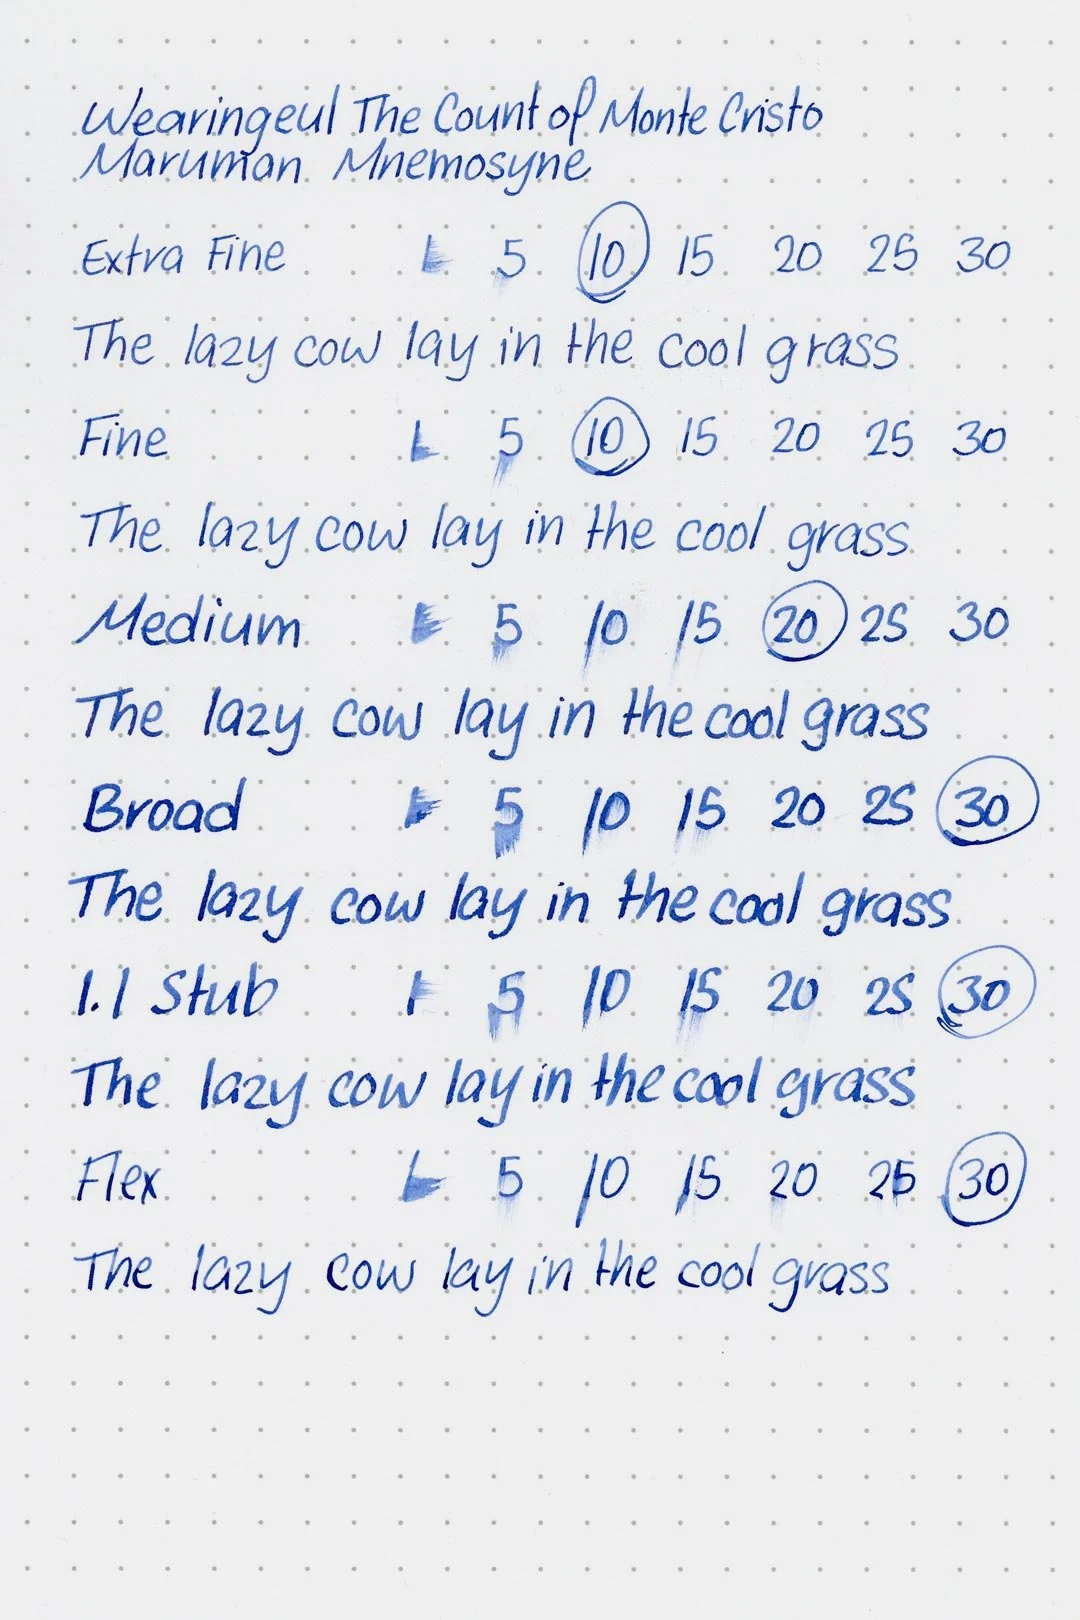 Wearingeul The Count of Monte Cristo
Maruman Mnemosyne
Extra Fine 1 5 10 15 20 25 30
The lazy cow lay in the cool grass
Fine 1 5 10 15 20 25 30
The lazy cow lay in the cool grass
Medium 1 5 10 15 20 25 30
The lazy cow lay in the cool grass
Broad 1 5 10 15 20 25 30
The lazy cow lay in the cool grass
1.1 Stub 1 5 10 15 20 25 30
The lazy cow lay in the cool grass
Flex 1 5 10 15 20 25 30
The lazy cow lay in the cool grass